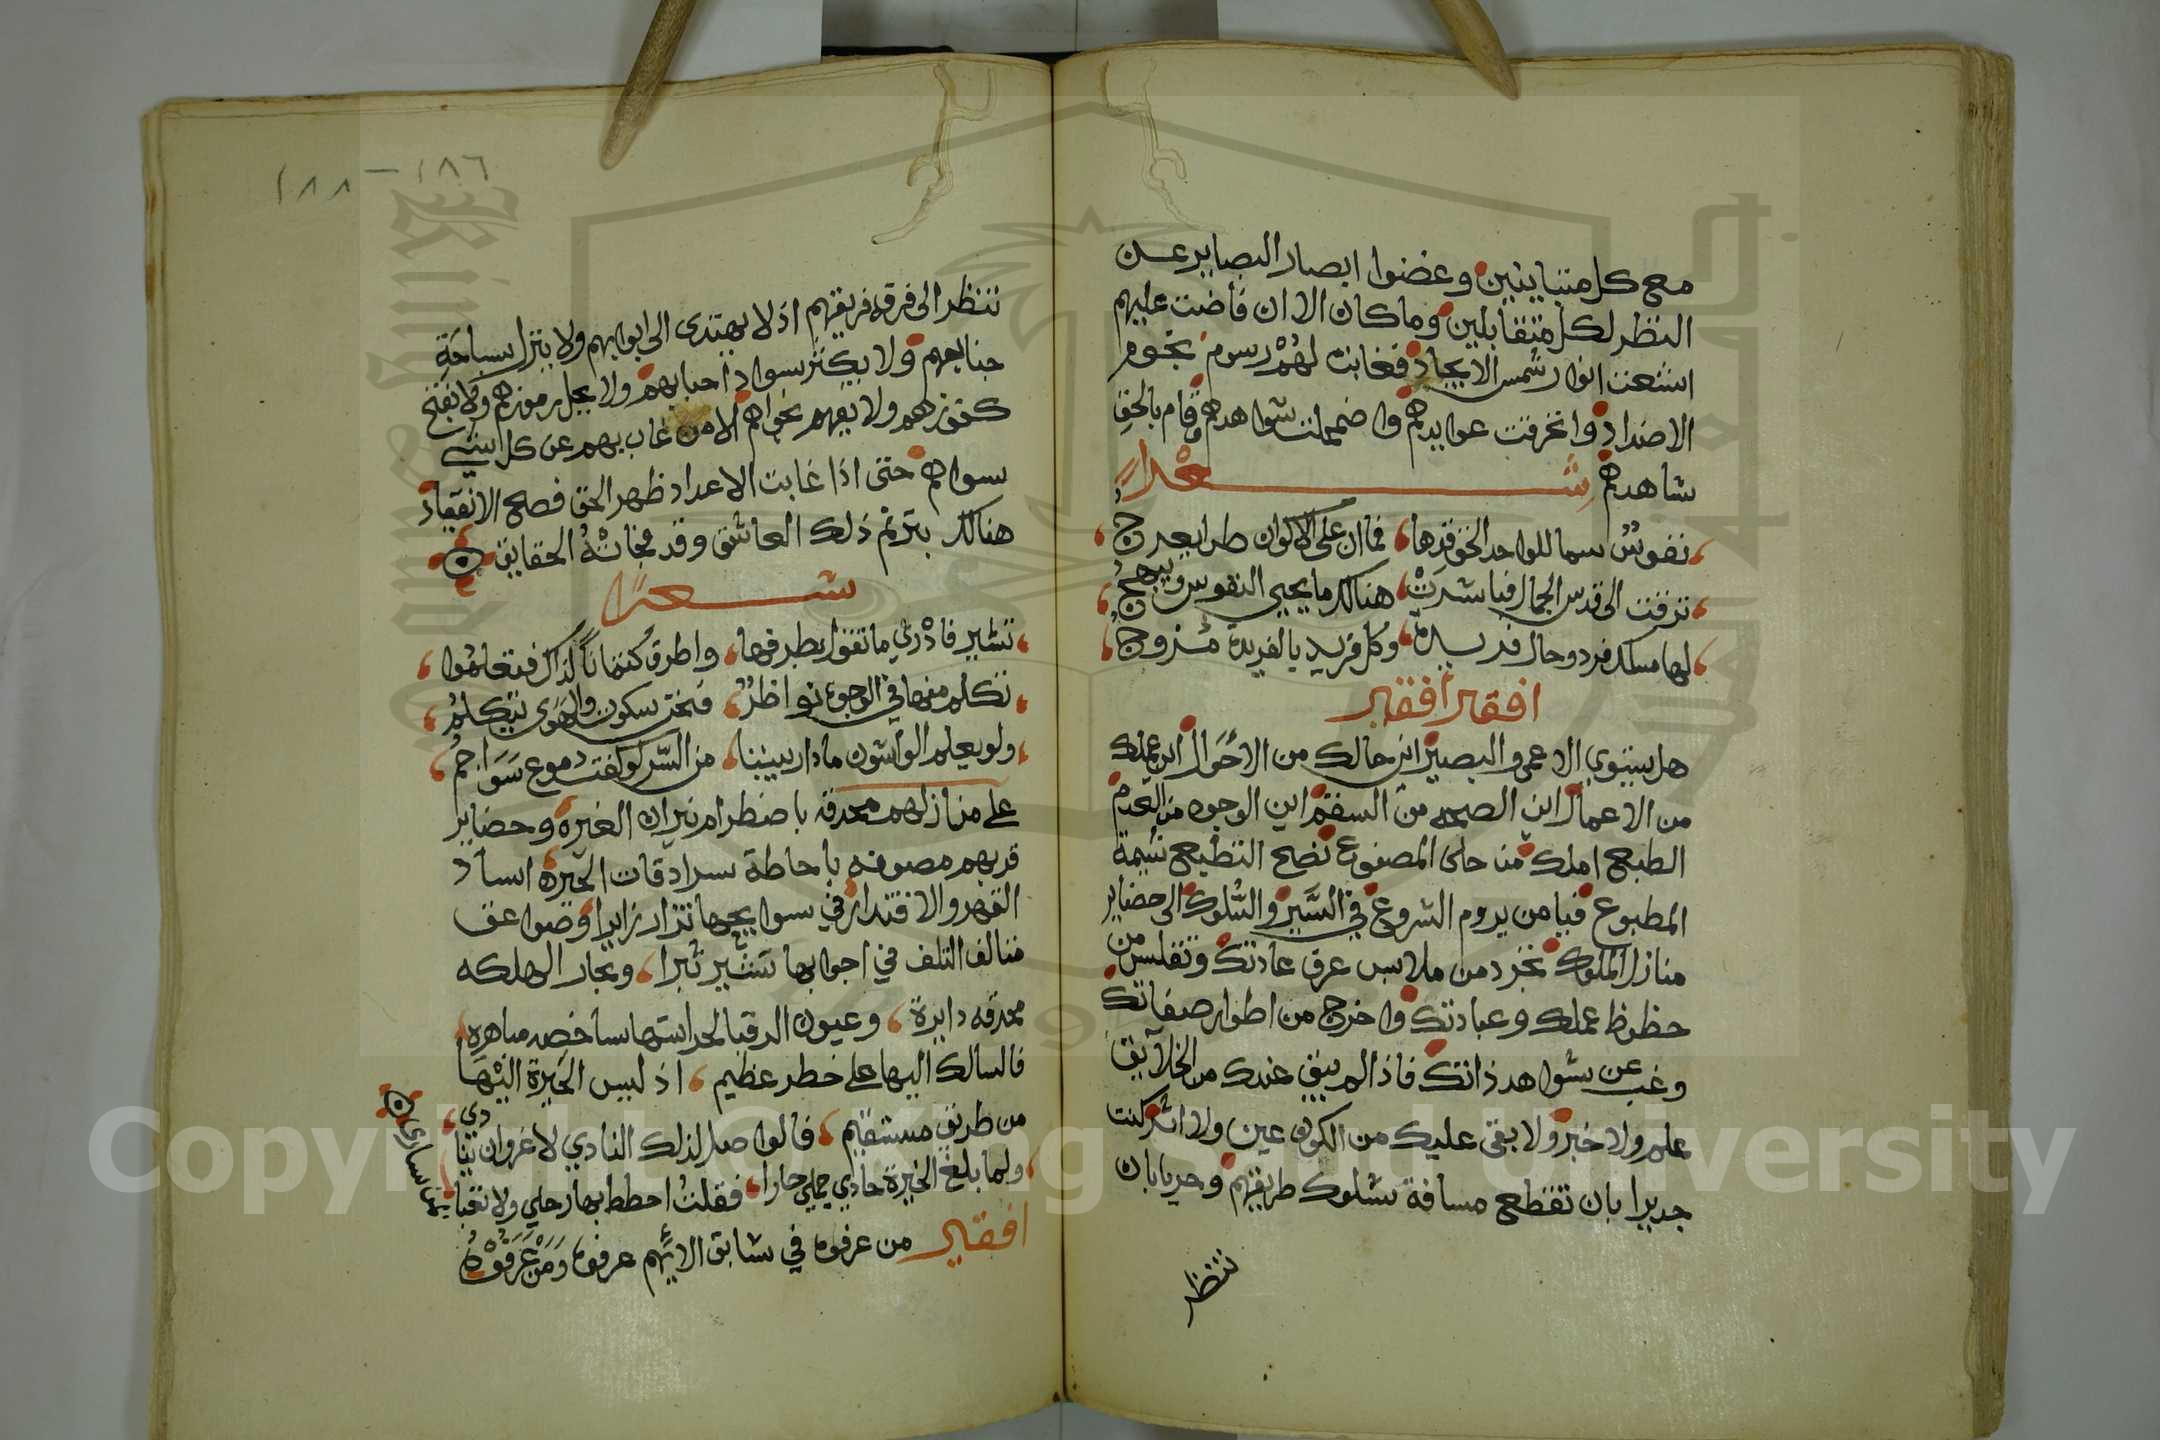 مع كل متباينين وغضوا ابصار البصاير عن
النظر لكل متقابلين وما كان الا ان فاضت عليهم
اشعت انوار شمس الايجاد فغابت لهم رسوم نجوم
الاضداد وانخرقت عوايدهم واضمحلت شواهدهم وقام بالحق
شاهدهم شعرا
نفوس سما للواحد الحق فردها فما ان على الاكوان طرا يعرج
ترقت الى قدس الجمال فباشرت هنالك ما يحيى النفوس ويبهج
لها مسلك فرد وحال فريدة وكل فريد بالفريدة مزوج
افقير افقير
هل يستوي الاعمى والبصير اين حالك من الاحوال اين عملك
من الاعمال اين الصحه من السقم اين الوجود من العدم
الطبع املك من حلى المصنوع نصح التطبع شيمة
المطبوع فيا من يروم الشروع في السير والسلوك الى حضاير
منازل الملوك تجرد من ملابس عرق عادتك وتفلس من
حظوظ عملك وعبادتك واخرج من اطوار صفاتك
وغب عن شواهد ذاتك فاذا لم يبق عندك من الخلايق
علم ولا خبر ولا بقى عليك من الكون عين ولا اثر كنت
جديرا بان تقطع مسافة سلوك طريقهم وحريا بان
تنظر
١٨٦ - ١٨٨
تنظر الى فرق فريقهم اذ لا يهتدى الى ابوابهم ولا ينزل بساحة
جنابهم ولا يكثر سواد احبابهم ولا يحل رموزهم ولا يفتح
كنوزهم ولا يفهم نجواهم الا من غاب بهم عن كل شيء
سواهم حتى اذا غابت الاعداد ظهر الحق فصح الانقياد
هنالك يترنم ذلك العاشق وقد فجاته الحقايق
شعرا
تشير فادري ما تقول بطرفها واطرق كتمانا لذاك فتعلموا
تكلم منها في الوجوه نواظر فنحن سكوت والهوى يتكلم
ولو يعلم الواشون ما دار بيننا من السر لو كفت دموع سواجم
على منازلهم محدقة باضطرام نيران الغيرة وحضاير
قربهم مصونه باحاطة سرادقات الحيرة اساد
القهر والاقتدار في سوابحها تزار زايرا وصواعق
متالف التلف في اجوابها تثير ثبرا وبحار الهلكه
محدقه دايرة وعيون الرقبا لحراستها شاخصه ساهره
فالسالك اليها على خطر عظيم اذ ليس الحيرة اليها
من طريق مستقيم قالوا صلد لذلك النادي لا غروان تيتا دي
ولما بلغ الحيرة حادي جملي حارا فقلت احطط بها رحلي ولا تعبا بمن سارى
افقير من عرفوه في سابق الايهم عرفوه ومن عرفوه
Copyright © King Saud University